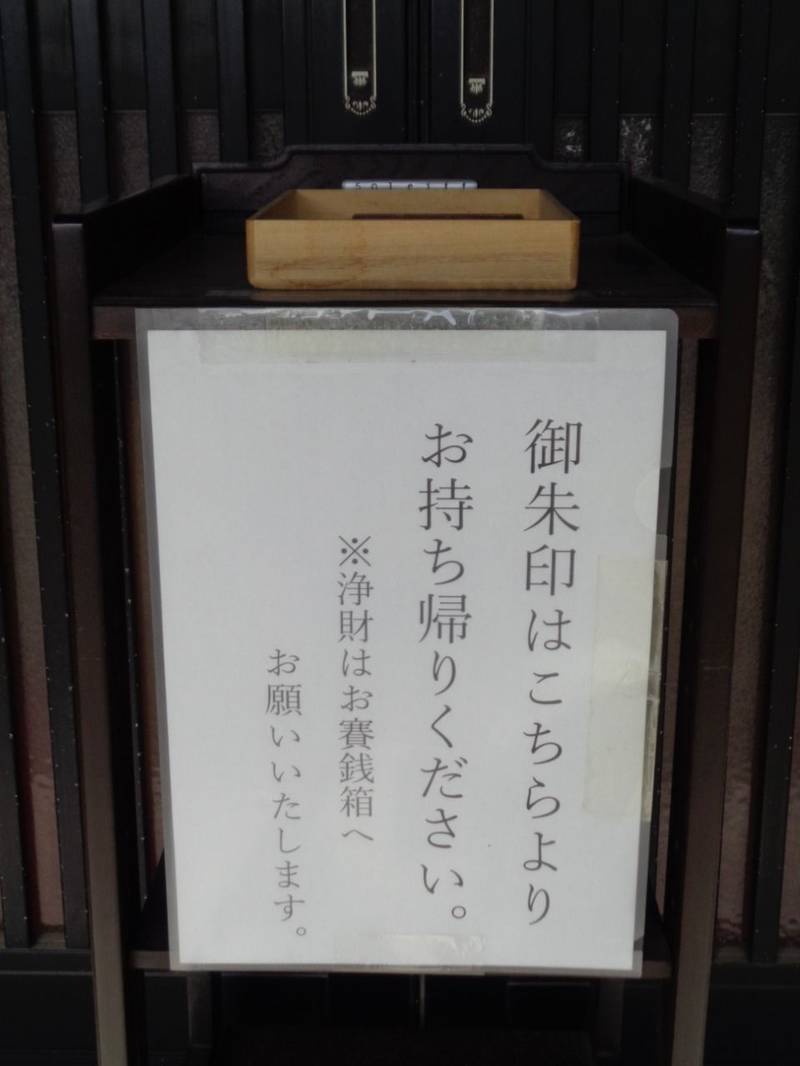 御朱印はこちらより
お持ち帰りください。
※浄財はお賽銭箱へ
お願いいたします。